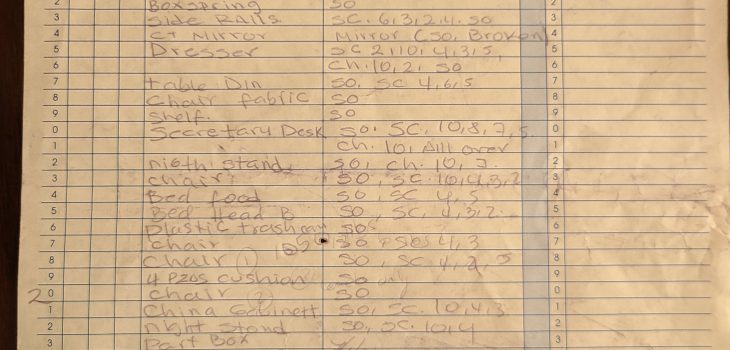 2 Boxspring SO 2
3 Side RAils SC. 6,3,2,4. SO 3
4 CT MIRROR Mirror (SO, Broken) 4
5 Dresser SC 2,10,4,3,5, 5
6 Ch. 10,2, SO 6
7 table Din SO. SC 4,6,5 7
8 Chair fabric SO 8
9 Shelf. SO 9
0 Secretary Desk SO. SC. 10,8,7,5. 0
1 Ch. 10, All over 1
2 nigth stand, SO, Ch. 10, 7. 2
3 chair SO, SC. 10,4,3,2 3
4 Bed food SO, SC 4,5 4
5 Bed Head B SO, SC, 4,3,2. 5
6 Plastic trashcan SO 6
7 Chair SO 4,3 7
8 Chair (1) SO, SC 4,2,5 8
9 4 Pzas cushion SO only 9
20 chair (2) SO 0
1 China Cabinett SO, SC. 10,4,3 1
2 night Stand SO, SC. 10,4 2
3 Part Box 3